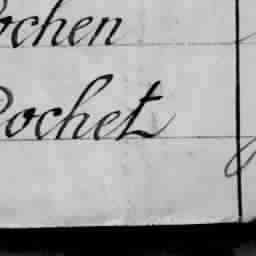 ochen
Pochet